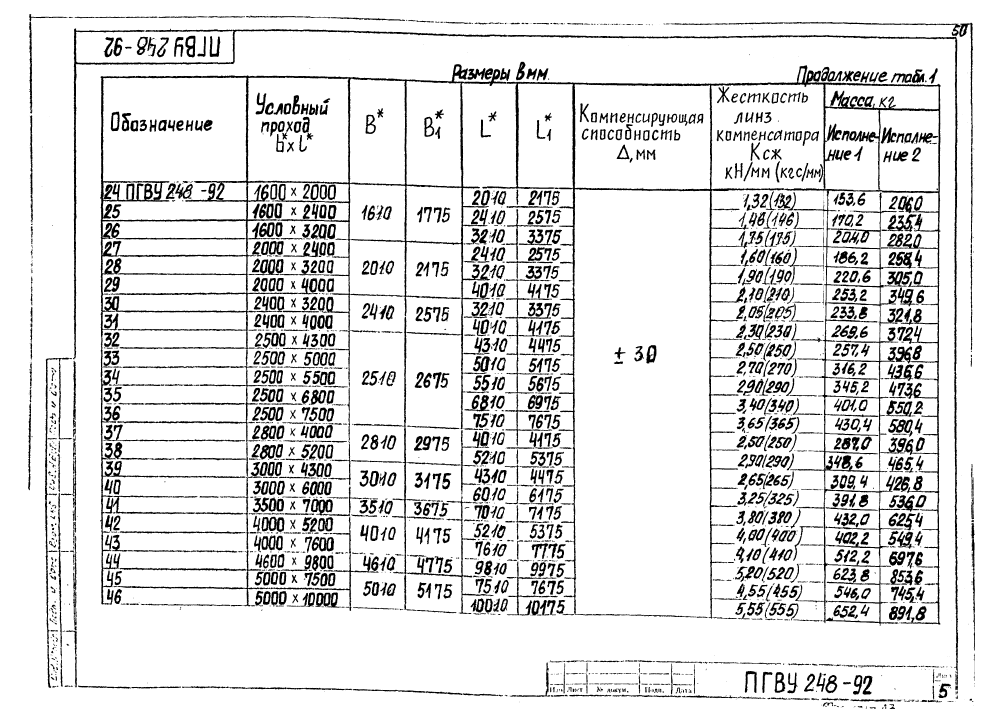 50
ПГВУ 248-92
Размеры в мм.
Продолжение табл. 1
Обозначение | Условный проход b* x l* | B* | B1* | L* | L1* | Компенсирующая способность Δ, мм | Жесткость линз компенсатора Ксж кН/мм (кгс/мм) | Масса, кг Исполнение 1 | Исполнение 2
24 ПГВУ 248-92 | 1600 × 2000 | 1610 | 1775 | 2010 | 2175 | ± 30 | 1,32(132) | 153,6 | 206,0
25 | 1600 × 2400 | 2410 | 2575 | 1,46(146) | 170,2 | 235,4
26 | 1600 × 3200 | 3210 | 3375 | 1,75(175) | 204,0 | 282,0
27 | 2000 × 2400 | 2010 | 2175 | 2410 | 2575 | 1,60(160) | 186,2 | 258,4
28 | 2000 × 3200 | 3210 | 3375 | 1,90(190) | 220,6 | 305,0
29 | 2000 × 4000 | 4010 | 4175 | 2,10(210) | 253,2 | 349,6
30 | 2400 × 3200 | 2410 | 2575 | 3210 | 3375 | 2,05(205) | 233,8 | 321,8
31 | 2400 × 4000 | 4010 | 4175 | 2,30(230) | 269,6 | 372,4
32 | 2500 × 4300 | 2510 | 2675 | 4310 | 4475 | 2,50(250) | 257,4 | 396,8
33 | 2500 × 5000 | 5010 | 5175 | 2,70(270) | 316,2 | 436,6
34 | 2500 × 5500 | 5510 | 5675 | 2,90(290) | 345,2 | 473,6
35 | 2500 × 6800 | 6810 | 6975 | 3,40(340) | 401,0 | 550,2
36 | 2500 × 7500 | 7510 | 7675 | 3,65(365) | 430,4 | 580,4
37 | 2800 × 4000 | 2810 | 2975 | 4010 | 4175 | 2,50(250) | 287,0 | 396,0
38 | 2800 × 5200 | 5210 | 5375 | 2,90(290) | 348,6 | 465,4
39 | 3000 × 4300 | 3010 | 3175 | 4310 | 4475 | 2,65(265) | 309,4 | 426,8
40 | 3000 × 6000 | 6010 | 6175 | 3,25(325) | 391,8 | 536,0
41 | 3500 × 7000 | 3510 | 3675 | 7010 | 7175 | 3,80(380) | 432,0 | 625,4
42 | 4000 × 5200 | 4010 | 4175 | 5210 | 5375 | 4,00(400) | 402,2 | 549,4
43 | 4000 × 7600 | 7610 | 7775 | 4,10(410) | 512,2 | 697,6
44 | 4600 × 9800 | 4610 | 4775 | 9810 | 9975 | 5,20(520) | 623,8 | 853,6
45 | 5000 × 7500 | 5010 | 5175 | 7510 | 7675 | 4,55(455) | 546,0 | 745,4
46 | 5000 × 10000 | 10010 | 10175 | 5,55(555) | 652,4 | 891,8
Изм | Лист | № докум. | Подп. | Дата
ПГВУ 248-92
Лист
5